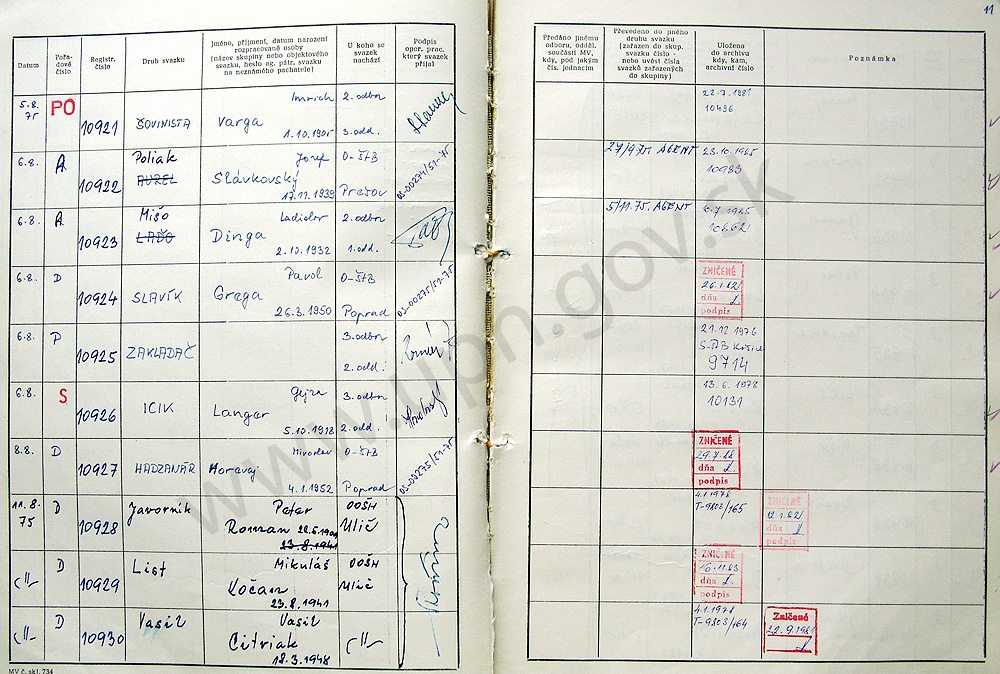 11
Datum
Pořa-
dové
číslo
Registr.
číslo
Druh svazku
Jméno, příjmení, datum narození
rozpracované osoby
(název skupiny nebo objektového
svazku, heslo ag. pátr. svazku
na neznámého pachatele)
U koho se
svazek
nachází
Podpis
oper. prac.
který svazek
přijal
Předáno jinému
odboru, odděl.
součásti MV,
kdy, pod jakým
čís. jednacím
Převedeno do jiného
druhu svazku
(zařazen do skup.
svazku číslo -
nebo uvést čísla
svazků zařazených
do skupiny)
Uloženo
do archivu
kdy, kam,
archivní číslo
Poznámka
5.8.
75
PO
10921
ŠOVINISTA
Imrich
Varga
1.10.1905
2. odbor
3. odd.
22.7.1981
10496
6.8.
A
10922
Poliak
AUREL
Jozef
Slávkovský
17.11.1939
O-ŠtB
Prešov
03-00274/51-75
27/9 75. AGENT
23.10.1985
10983
6.8.
A
10923
Mišo
LAĎO
Ladislav
Dinga
2.10.1932
2. odbor
1. odd.
5/11.75. AGENT
10662
6.8.
D
10924
SLAVÍK
Pavol
Grega
26.3.1950
O-ŠtB
Poprad
03-00275/51-75
ZNIČENÉ
26.1.82
dňa
podpis
6.8.
P
10925
ZAKLADAČ
3. odbor
2. odd.
21.12.1976
9714
6.8.
S
10926
ICIK
Gejza
Langer
5.10.1918
3. odbor
2. odd.
13.6.1978
10131
8.8.
D
10927
HADZANÁR
Miroslav
Moravaj
4.1.1952
O-ŠtB
Poprad
03-00275/51-75
ZNIČENÉ
29.7.88
dňa
podpis
11.8.
75
D
10928
Javorník
Peter
Roman
23.8.1941
OOŠH
Ulič
4.1.1978
T-9803/165
ZNIČENÉ
12.1.82
dňa
podpis
-//-
D
10929
List
Mikuláš
Kočan
23.8.1941
OOŠH
Ulič
ZNIČENÉ
16.11.83
dňa
podpis
-//-
D
10930
Vasil
Vasil
Citriak
18.3.1948
-//-
4.1.1978
T-9803/164
Zničené
22.9.1981
MV č. skl. 734
www.upn.gov.sk